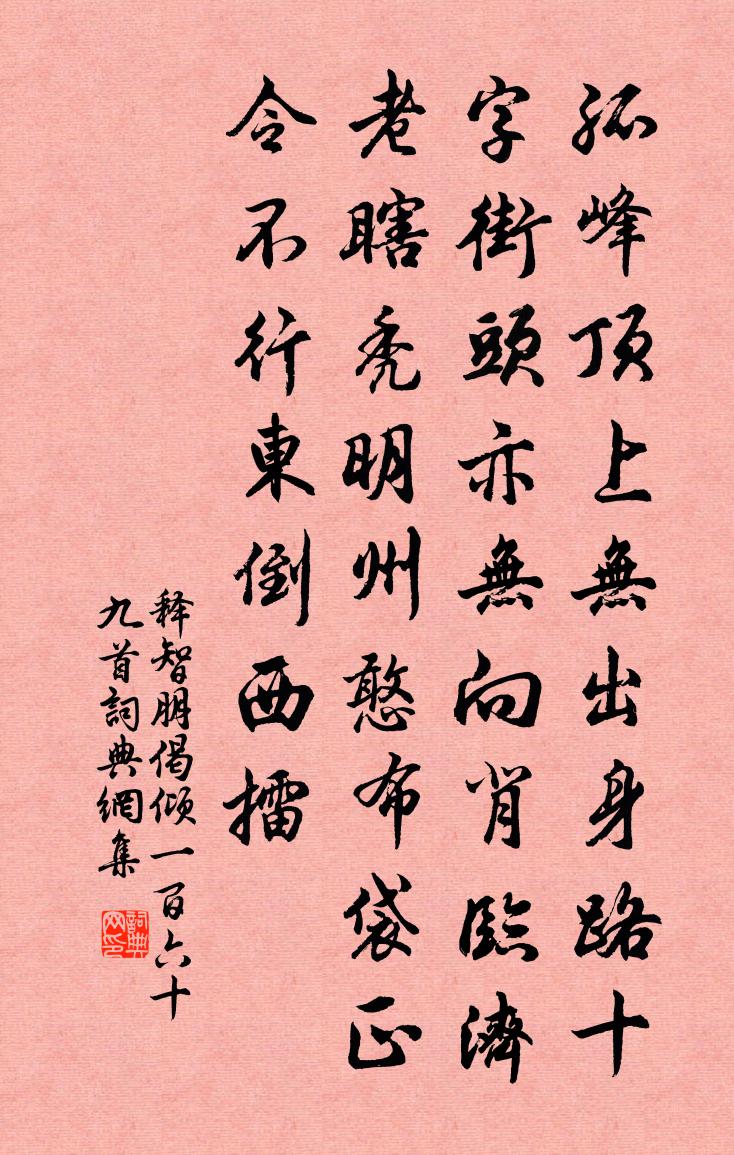 孤峰頂上無出身路十
字街頭亦無向背臨濟
老瞎秃明州憨布袋正
令不行東倒西擂
释智朋偈傾一百六十
九首詞典網集
詞典网印